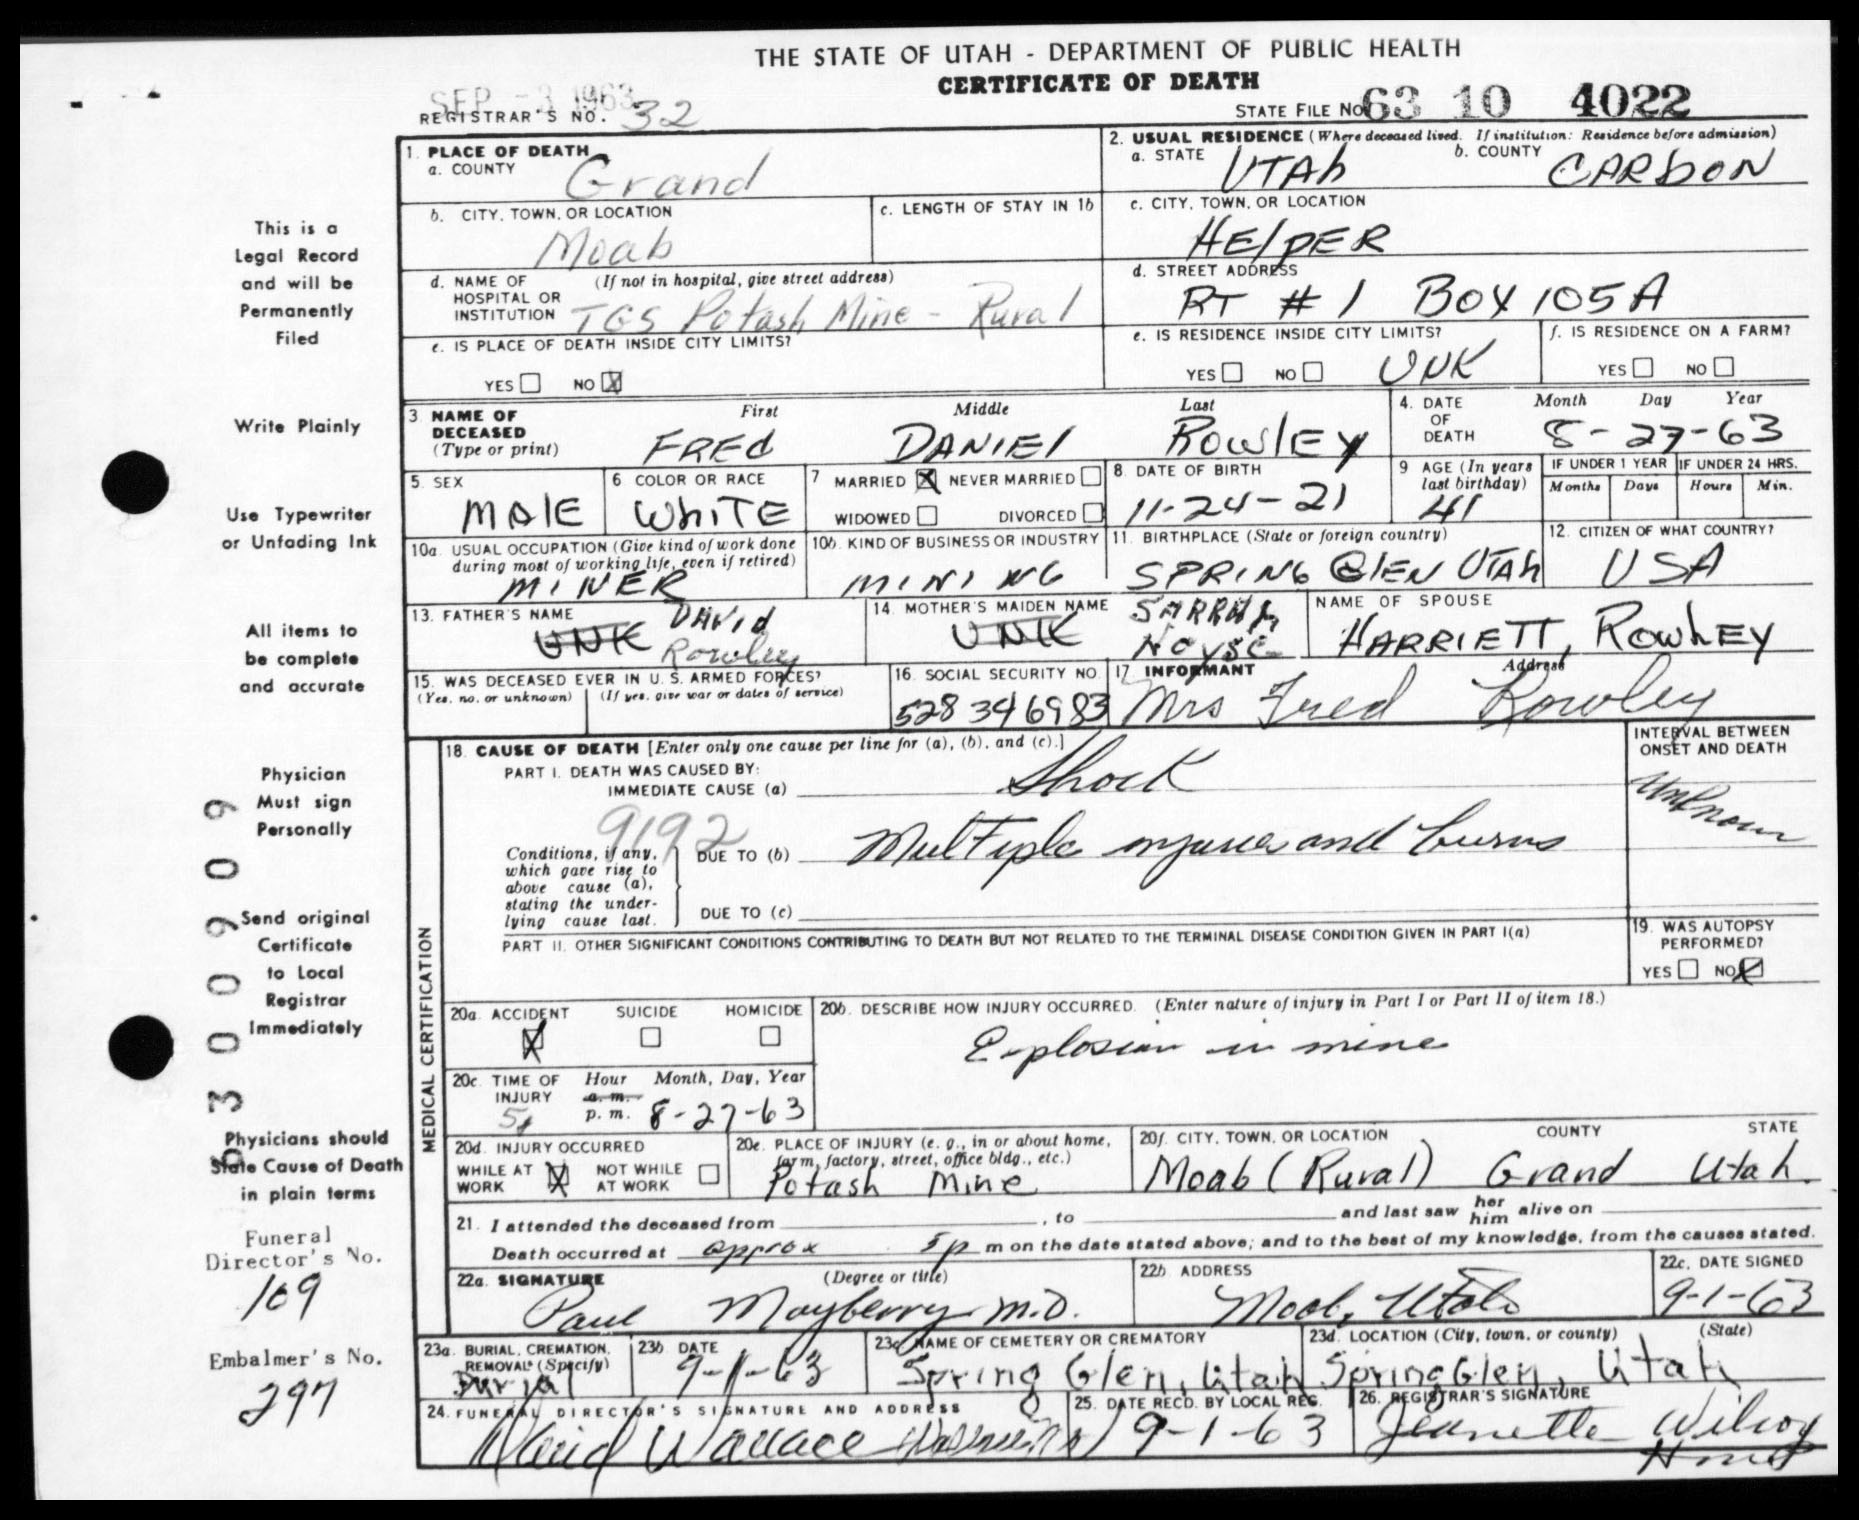 THE STATE OF UTAH - DEPARTMENT OF PUBLIC HEALTH
CERTIFICATE OF DEATH
SEP -3 1963
REGISTRAR'S NO. 32
STATE FILE NO. 63 10 4022
This is a
Legal Record
and will be
Permanently
Filed
Write Plainly
Use Typewriter
or Unfading Ink
All items to
be complete
and accurate
Physician
Must sign
Personally
Send original
Certificate
to Local
Registrar
Immediately
Physicians should
State Cause of Death
in plain terms
Funeral
Director's No.
109
Embalmer's No.
297
63 00909
1. PLACE OF DEATH
a. COUNTY Grand
b. CITY, TOWN, OR LOCATION Moab
c. LENGTH OF STAY IN 1b
d. NAME OF (If not in hospital, give street address)
HOSPITAL OR
INSTITUTION TGS Potash Mine - Rural
e. IS PLACE OF DEATH INSIDE CITY LIMITS?
YES NO X
2. USUAL RESIDENCE (Where deceased lived. If institution: Residence before admission)
a. STATE UTAh b. COUNTY CARbON
c. CITY, TOWN, OR LOCATION
HElpER
d. STREET ADDRESS
RT # 1 BOX 105A
e. IS RESIDENCE INSIDE CITY LIMITS?
YES NO UNK
f. IS RESIDENCE ON A FARM?
YES NO
3. NAME OF DECEASED (Type or print)
First Middle Last
FREd DANIEl ROWlEy
4. DATE OF DEATH Month Day Year
8-27-63
5. SEX MAlE
6 COLOR OR RACE WhITE
7 MARRIED X NEVER MARRIED
WIDOWED DIVORCED
8. DATE OF BIRTH
11-24-21
9 AGE (In years last birthday) 41
IF UNDER 1 YEAR IF UNDER 24 HRS.
Months Days Hours Min.
10a. USUAL OCCUPATION (Give kind of work done
during most of working life, even if retired)
MINER
10b. KIND OF BUSINESS OR INDUSTRY
MINING
11. BIRTHPLACE (State or foreign country)
SPRING GlEN UTAh
12. CITIZEN OF WHAT COUNTRY?
USA
13. FATHER'S NAME
UNK DAVId Rowley
14. MOTHER'S MAIDEN NAME
UNK SARRAh Noyse
NAME OF SPOUSE
HARRIETT, ROWhEY
15. WAS DECEASED EVER IN U.S. ARMED FORCES?
(Yes, no, or unknown) (If yes, give war or dates of service)
16. SOCIAL SECURITY NO.
528 34 6983
17 INFORMANT Address
Mrs Fred Rowley
18. CAUSE OF DEATH [Enter only one cause per line for (a), (b), and (c).]
INTERVAL BETWEEN
ONSET AND DEATH
PART I. DEATH WAS CAUSED BY:
IMMEDIATE CAUSE (a) Shock
Unknown
9192
Conditions, if any,
which gave rise to
above cause (a),
stating the under-
lying cause last.
DUE TO (b) Multiple injuries and burns
DUE TO (c)
PART II. OTHER SIGNIFICANT CONDITIONS CONTRIBUTING TO DEATH BUT NOT RELATED TO THE TERMINAL DISEASE CONDITION GIVEN IN PART I(a)
19. WAS AUTOPSY
PERFORMED?
YES NO X
MEDICAL CERTIFICATION
20a. ACCIDENT SUICIDE HOMICIDE
X
20b. DESCRIBE HOW INJURY OCCURRED. (Enter nature of injury in Part I or Part II of item 18.)
Explosion in mine
20c. TIME OF INJURY Hour Month, Day, Year
5 a.m. p.m. 8-27-63
20d. INJURY OCCURRED
WHILE AT WORK X NOT WHILE AT WORK
20e. PLACE OF INJURY (e. g., in or about home,
farm, factory, street, office bldg., etc.)
Potash Mine
20f. CITY, TOWN, OR LOCATION COUNTY STATE
Moab (Rural) Grand Utah.
21. I attended the deceased from , to and last saw her him alive on
Death occurred at approx 5p m on the date stated above; and to the best of my knowledge, from the causes stated.
22a. SIGNATURE (Degree or title)
Paul Mayberry M.D.
22b. ADDRESS
Moab, Utah
22c. DATE SIGNED
9-1-63
23a. BURIAL, CREMATION,
REMOVAL (Specify)
Burial
23b. DATE
9-1-63
23c. NAME OF CEMETERY OR CREMATORY
Spring Glen, Utah
23d. LOCATION (City, town, or county) (State)
Spring Glen, Utah
24. FUNERAL DIRECTOR'S SIGNATURE AND ADDRESS
David Wallace
25. DATE RECD. BY LOCAL REG.
9-1-63
26. REGISTRAR'S SIGNATURE
Jeanette Wilcox